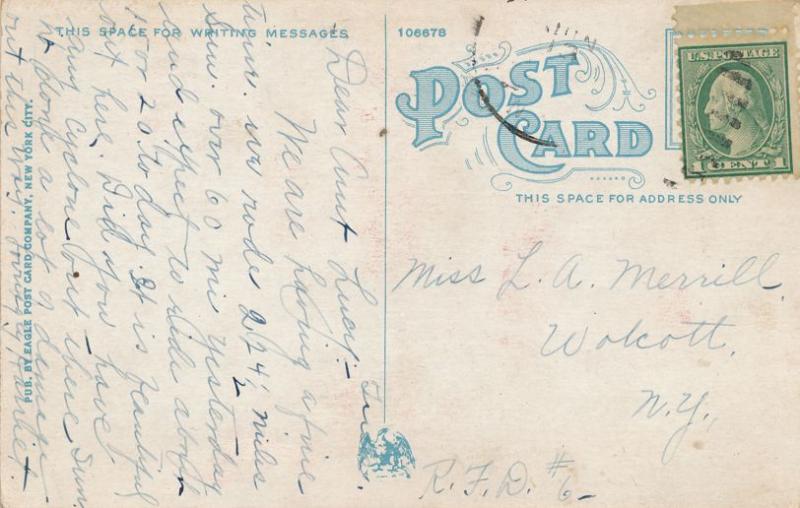 THIS SPACE FOR WRITING MESSAGES
106678
POST CARD
THIS SPACE FOR ADDRESS ONLY
U.S. POSTAGE
1 CENT 1
PUB. BY EAGLE POST CARD COMPANY, NEW YORK CITY.
Dear Aunt Lucy:-
We are having a fine
time. we rode 224½ miles
Sun. over 60 mi yesterday
and expect to ride about
15 or 20 to day. It is beautiful
out here. Did you have
any cyclone out there Sun.
it done a lot of damage
out this way.
Miss L. A. Merrill,
Wolcott,
N.Y.,
R.F.D. #6-